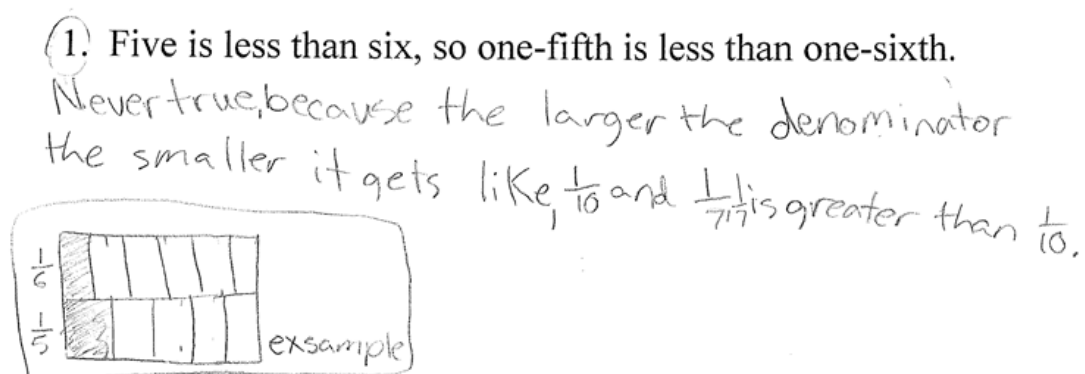 1. Five is less than six, so one-fifth is less than one-sixth.
Never true, because the larger the denominator
the smaller it gets like, 1/10 and 1/7, 1/7 is greater than 1/10.
1/6
1/5
exsample